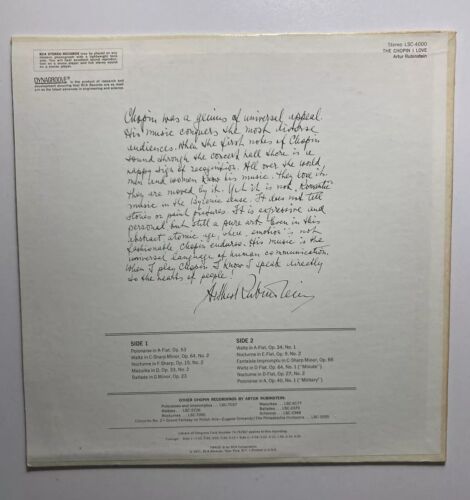 RCA STEREO RECORDS may be played on any
DYNAGROOVE® is the product of research and
Stereo LSC-4000
THE CHOPIN I LOVE
Artur Rubinstein
Chopin was a genius of universal appeal.
His music conquers the most diverse
audiences. When the first notes of Chopin
sound through the concert hall there is a
happy sigh of recognition. All over the world
men and women know his music. They love it;
they are moved by it. Yet it is not "Romantic
music" in the Byronic sense. It does not tell
stories or paint pictures. It is expressive and
personal but still a pure art. Even in this
abstract atomic age, where emotion is not
fashionable Chopin endures. His music is the
universal language of human communication.
When I play Chopin I know I speak directly
to the hearts of people!
Arthur Rubinstein
SIDE 1
Polonaise in A-Flat, Op. 53
Waltz in C-Sharp Minor, Op. 64, No. 2
Nocturne in F-Sharp, Op. 15, No. 2
Mazurka in D, Op. 33, No. 2
Ballade in G Minor, Op. 23
SIDE 2
Waltz in A-Flat, Op. 34, No. 1
Nocturne in E-Flat, Op. 9, No. 2
Fantaisie-Impromptu in C-Sharp Minor, Op. 66
Waltz in D-Flat, Op. 64, No. 1 ("Minute")
Nocturne in D-Flat, Op. 27, No. 2
Polonaise in A, Op. 40, No. 1 ("Military")
OTHER CHOPIN RECORDINGS BY ARTUR RUBINSTEIN: